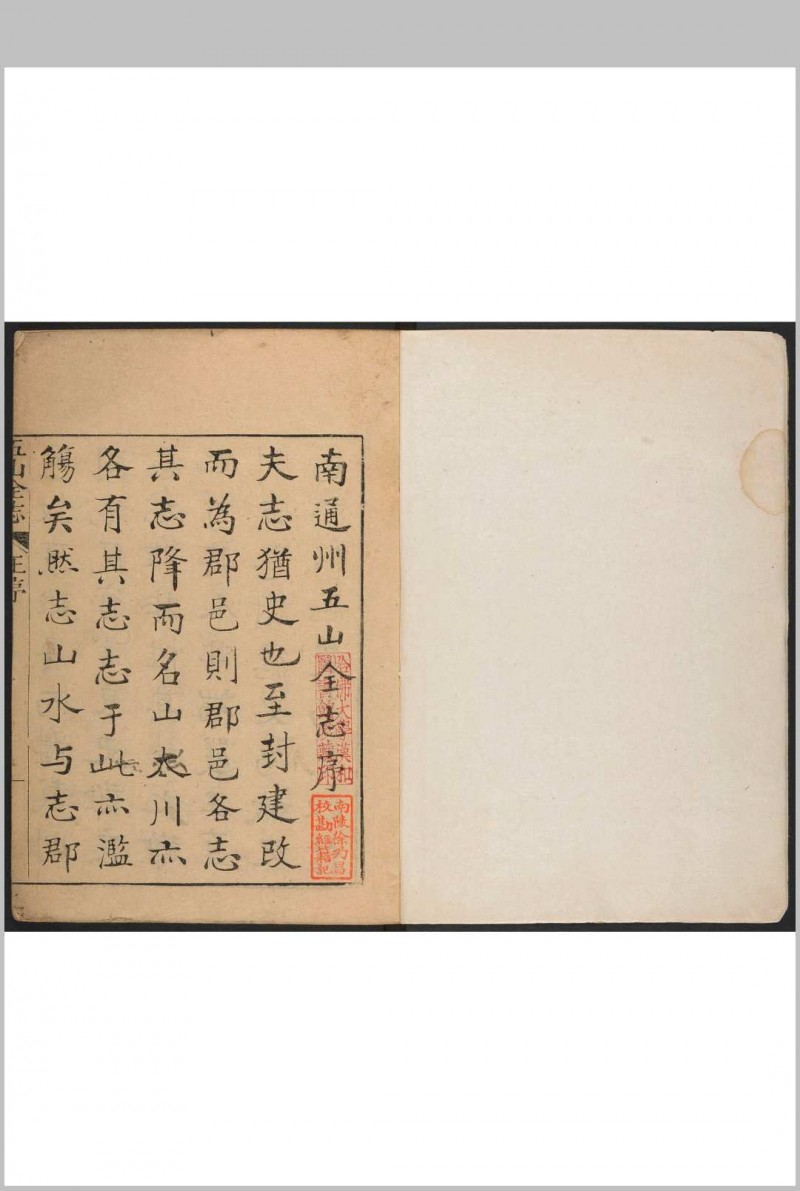 南通州五山全志序
夫志猶史也至封建改
而為郡邑則郡邑各志
其志降而名山大川亦
各有其志志于此亦濫
觴矣然志山水与志郡
五山全志
王序
南陵徐乃昌
校勘經籍記